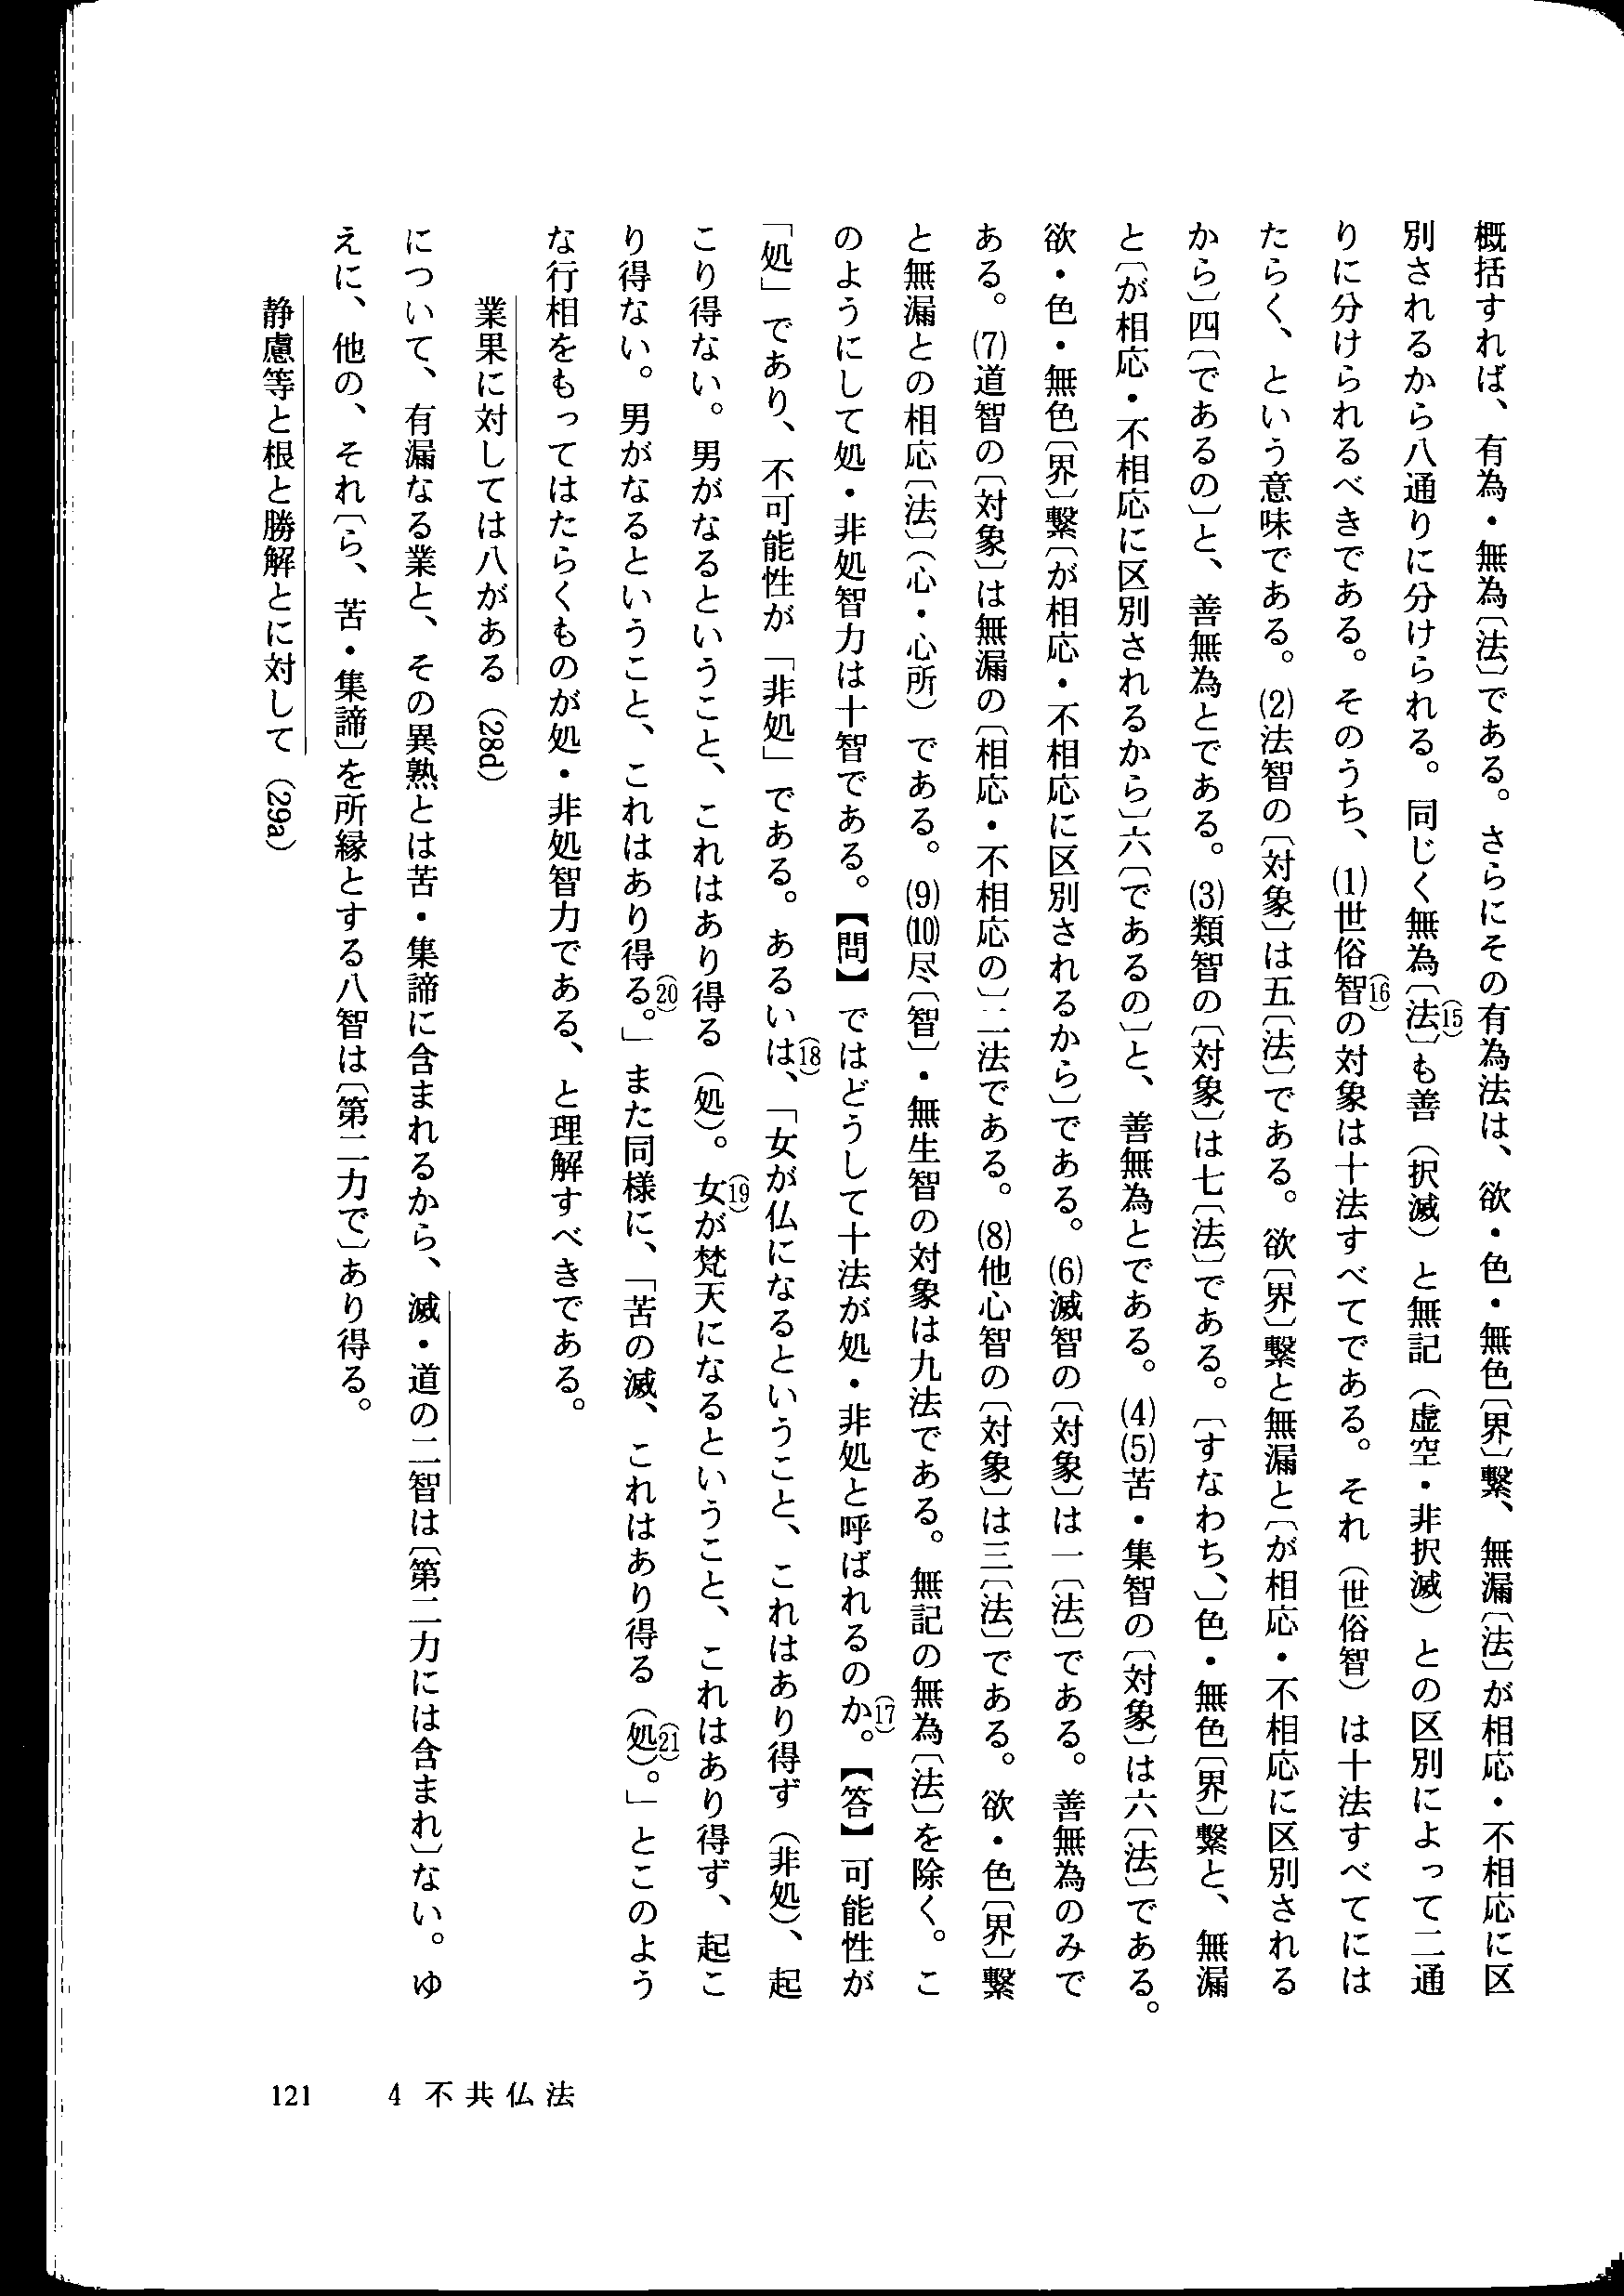 概括すれば、有為・無為〔法〕である。さらにその有為法は、欲・色・無色〔界〕繫、無漏〔法〕が相応・不相応に区
別されるから八通りに分けられる。同じく無為〔法〕(15)も善（択滅）と無記（虚空・非択滅）との区別によって二通
りに分けられるべきである。そのうち、(1)世俗智(16)の対象は十法すべてである。それ（世俗智）は十法すべてには
たらく、という意味である。(2)法智の〔対象〕は五〔法〕である。欲〔界〕繫と無漏と〔が相応・不相応に区別される
から〕四〔であるの〕と、善無為とである。(3)類智の〔対象〕は七〔法〕である。〔すなわち、〕色・無色〔界〕繫と、無漏
と〔が相応・不相応に区別されるから〕六〔であるの〕と、善無為とである。(4)(5)苦・集智の〔対象〕は六〔法〕である。
欲・色・無色〔界〕繫〔が相応・不相応に区別されるから〕である。(6)滅智の〔対象〕は一〔法〕である。善無為のみで
ある。(7)道智の〔対象〕は無漏の〔相応・不相応の〕二法である。(8)他心智の〔対象〕は三〔法〕である。欲・色〔界〕繫
と無漏との相応〔法〕（心・心所）である。(9)(10)尽〔智〕・無生智の対象は九法である。無記の無為〔法〕を除く。こ
のようにして処・非処智力は十智である。【問】ではどうして十法が処・非処と呼ばれるのか(17)。【答】可能性が
「処」であり、不可能性が「非処」である。あるいは(18)、「女が仏になるということ、これはあり得ず（非処）、起
こり得ない。男がなるということ、これはあり得る（処）。女(19)が梵天になるということ、これはあり得ず、起こ
り得ない。男がなるということ、これはあり得る(20)。」また同様に、「苦の滅、これはあり得る（処）(21)。」とこのよう
な行相をもってはたらくものが処・非処智力である、と理解すべきである。
業果に対しては八がある（28d）
について、有漏なる業と、その異熟とは苦・集諦に含まれるから、滅・道の二智は〔第二力には含まれ〕ない。ゆ
えに、他の、それ〔ら、苦・集諦〕を所縁とする八智は〔第二力で〕あり得る。
静慮等と根と勝解とに対して（29a）
121　4 不共仏法